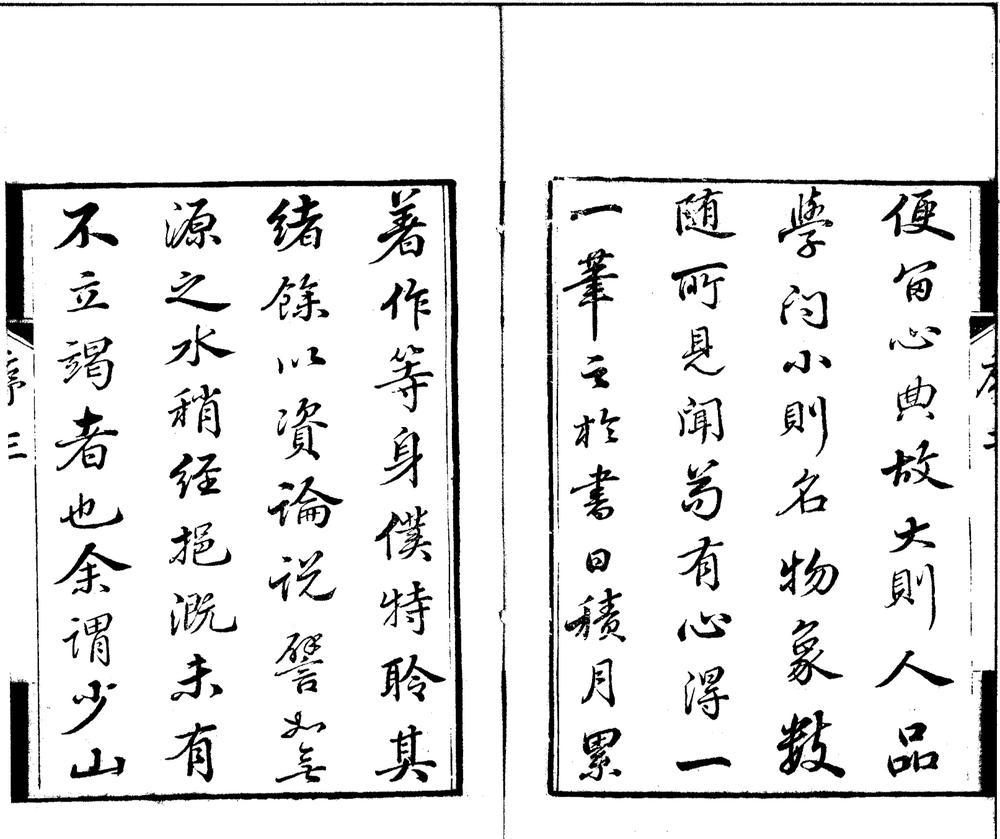 便畱心典故大則人品
學问小則名物象數
随所見聞苟有心得一
一筆之於書日積月累
著作等身僕特聆其
緒餘以資論说譬如無
源之水稍经挹溉未有
不立竭者也余谓少山
序三